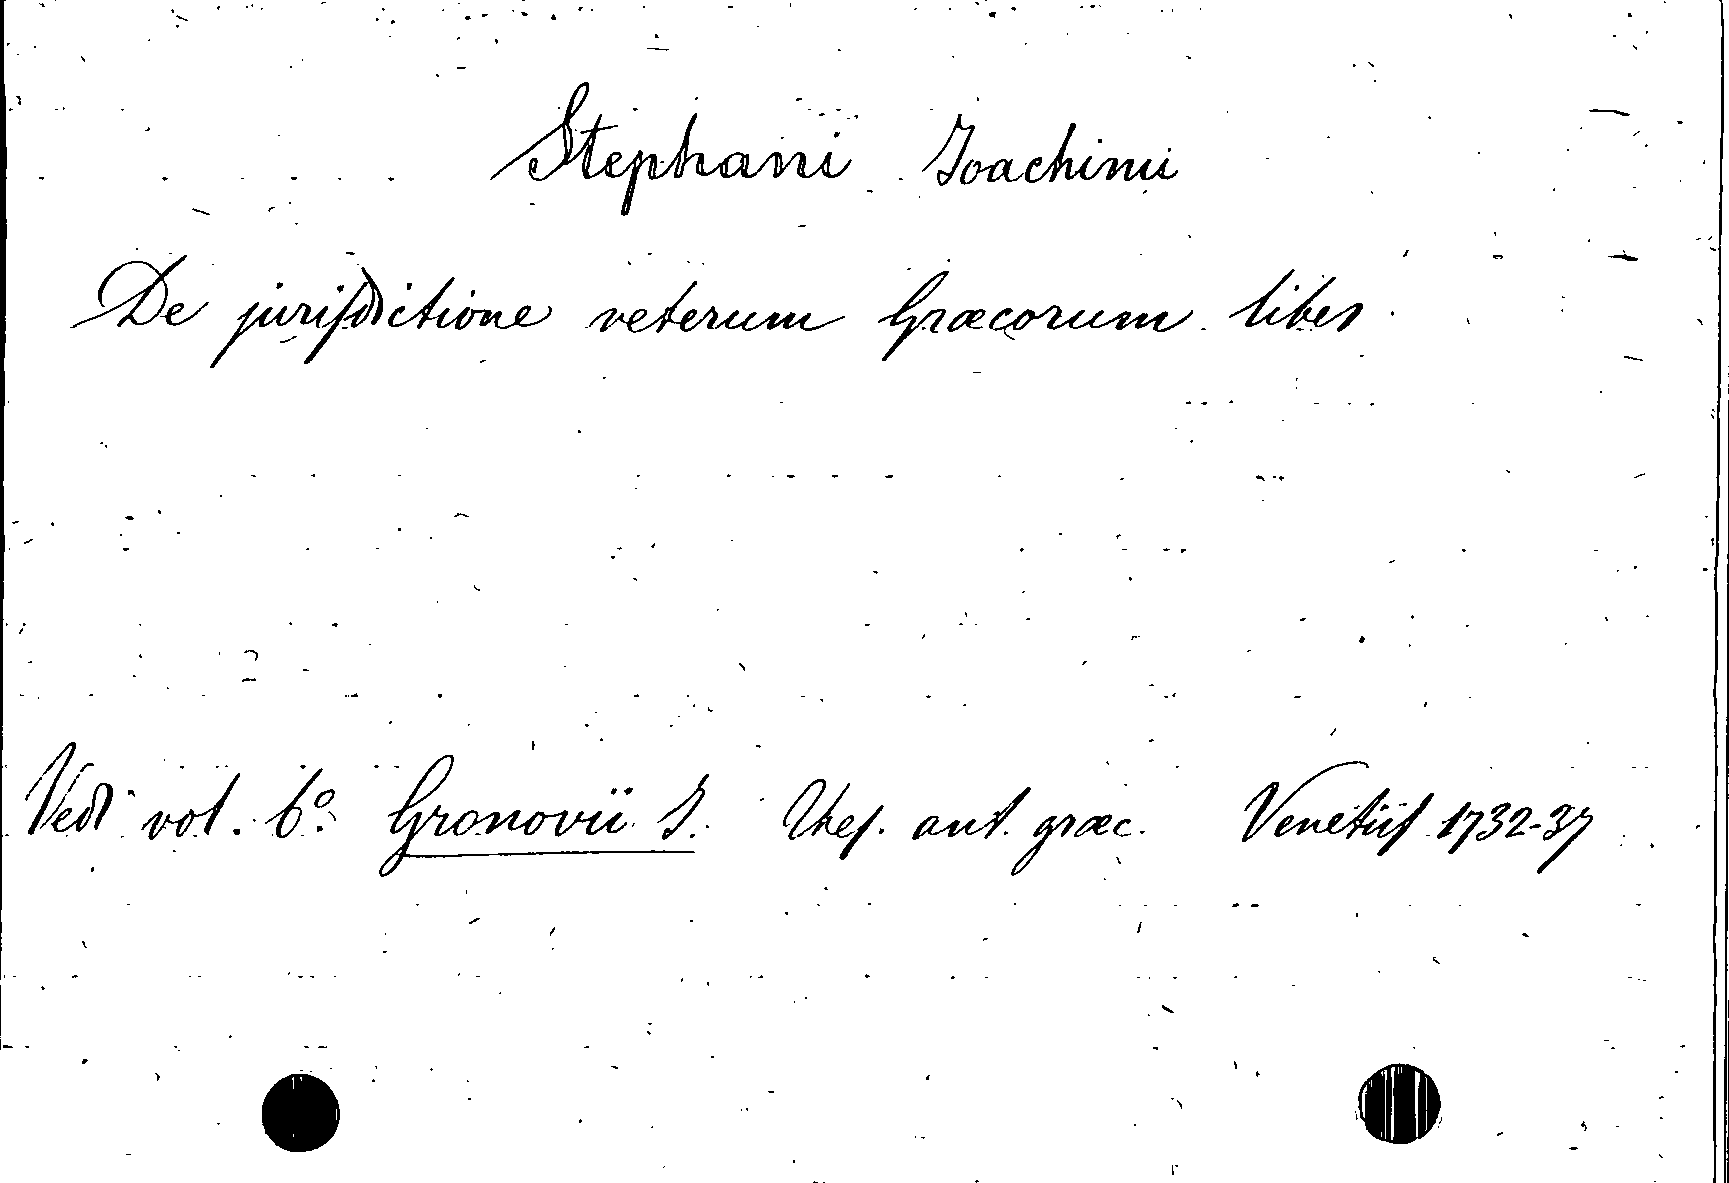 Stephani Joachimi
De jurisdictione veterum Græcorum liber
Vedi vol. 6º Gronovii J. Thes. ant. græc. Venetiis 1732-37